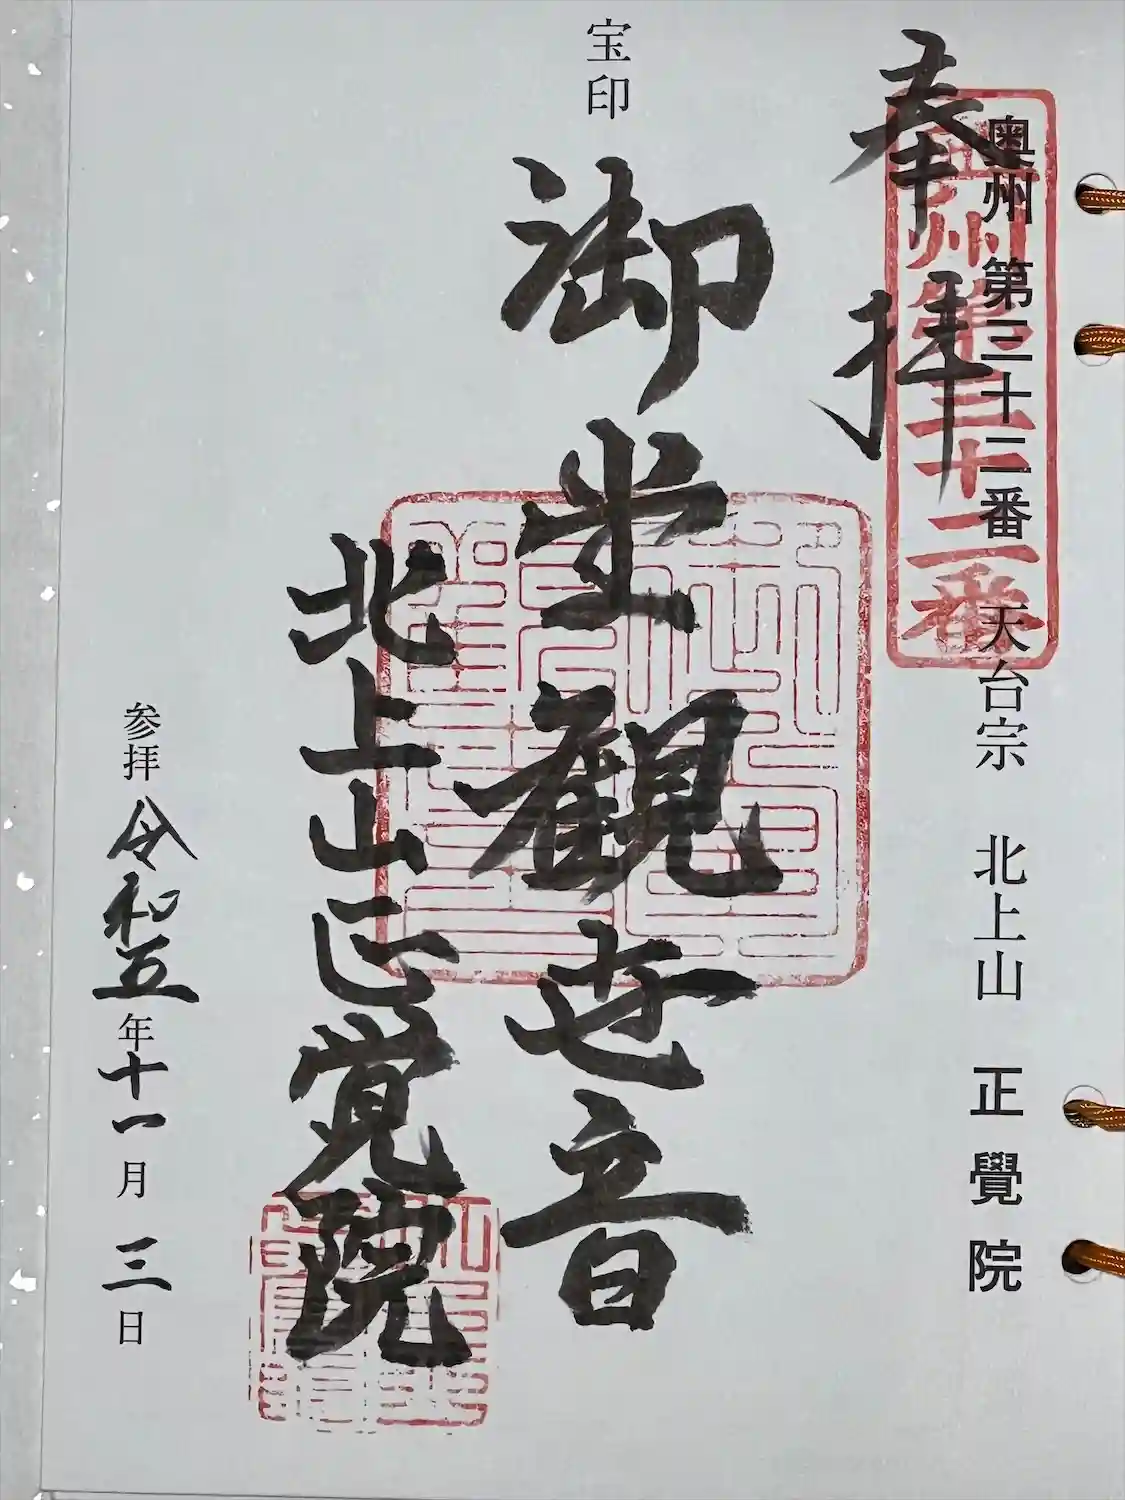 奥州 第三十二番 天台宗 北上山 正覺院
奥州第三十二番
奉拝
宝印
御堂観世音
北上山正覚院
参拝 令和五年十一月三日